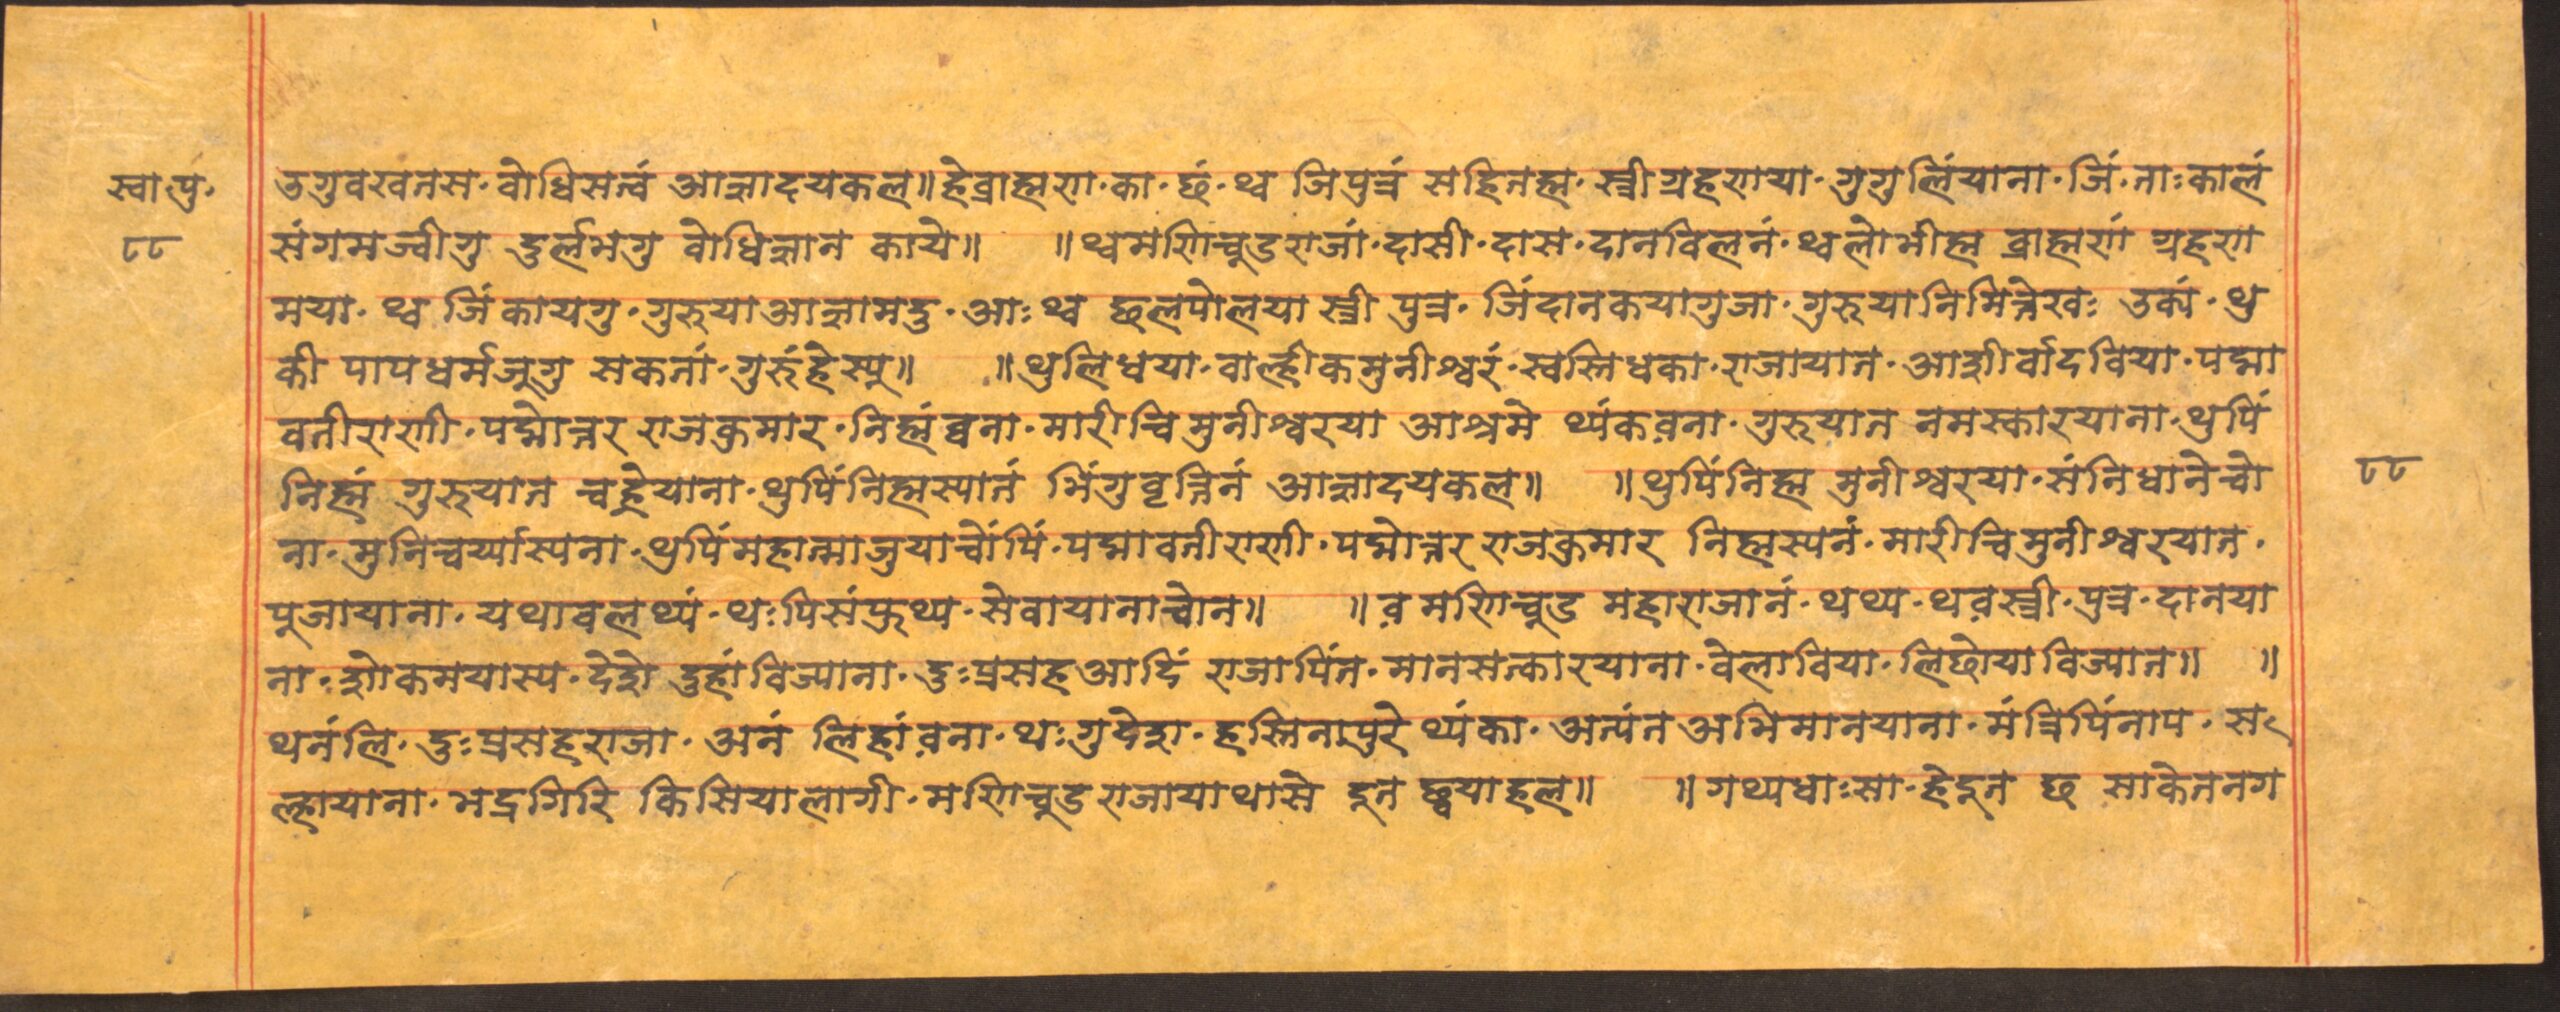 स्वा पु॰
८८
उगुवखतस॰ वोधिसत्वं आज्ञादयकल॥ हेव्राह्मण॰ का॰ छं॰ थ्व जिपुत्रं सहितह्म॰ स्त्रीग्रहणया॰ गुगुलिंयाना॰ जिं॰ ताःकालं
संगमज्वीगु दुर्लभगु वोधिज्ञान काये॥ ॥ थ्वमणिचूडराजां॰ दासी॰ दास॰ दानविलनं॰ थ्वलोभीह्म व्राह्मणं ग्रहण
मया॰ थ्व जिंकायगु॰ गुरुयाआज्ञामदु॰ आः थ्व छलपोलया स्त्री पुत्र॰ जिंदानकयागुजा॰ गुरुयानिमित्तेखः उक्यं॰ थु
की पापधर्मजूगु सकतां॰ गुरुंहेस्यू॥ ॥ थुलिधया॰ वाल्हीकमुनीश्वरं॰ स्वस्तिधका॰ राजायात॰ आशीर्वादविया॰ पद्मा
वतीराणी॰ पद्मोत्तर राजकुमार॰ निह्मंव्वना॰ मारीचिमुनीश्वरया आश्रमे थ्यंकव़ना॰ गुरुयात नमस्कारयाना॰ थुपिं
निह्मं गुरुयात च्वहेयाना॰ थुपिंनिह्मस्यातं भिंगुवृत्तिनं आज्ञादयकल॥ ॥ थुपिंनिह्म मुनीश्वरया॰ संनिधानेच्वो
ना॰ मुनिचर्य्यास्यना॰ थुपिंमहात्माजुयाच्वोंपिं॰ पद्मावतीराणी॰ पद्मोत्तर राजकुमार निह्मस्यनं॰ मारीचिमुनीश्वरयात॰
पूजायाना॰ यथावलथ्यं॰ थःपिसंफुथ्य॰ सेवायानाच्वोन॥ ॥ व़ मणिचूड महाराजानं॰ थथ्य॰ थव़स्त्री॰ पुत्र॰ दानया
ना॰ शोकमयास्य॰ देशे दुहांविज्याना॰ दुःप्रसहआदिं राजापिंत॰ मानसत्कारयाना॰ वेलाविया॰ लिछोयाविज्यात॥ ॥
थनंलि॰ दुःप्रसहराजा॰ अनं लिहांव़ना॰ थःगुदेश॰ हस्तिनापुरे थ्यंका॰ अत्यंत अभिमानयाना॰ मंत्रिपिंनाप॰ स
ल्हायाना॰ भद्रगिरि किसियालागी॰ मणिचूड राजायाथासे दूत छ्वयाहल॥ ॥ गथ्यधाःसा॰ हेदूत छ साकेतनग
८८